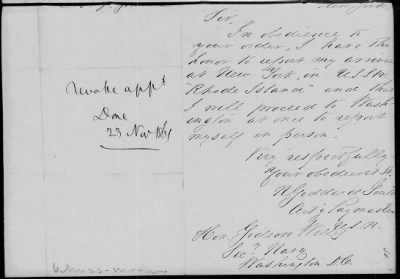 New York
Sir.
In obedience to
your order, I have the
honor to report my arrival
at New York, in U.S.S.
"Rhode Island" and that
I will proceed to Wash-
ington at once to report
myself in person.
Very respectfully
Your obedient
Goddard
Actg Paymaster
U.S.N.
Hon. Gideon Welles
Secy Navy
Washington D.C.
revoke appt
Done
23 Nov 1861